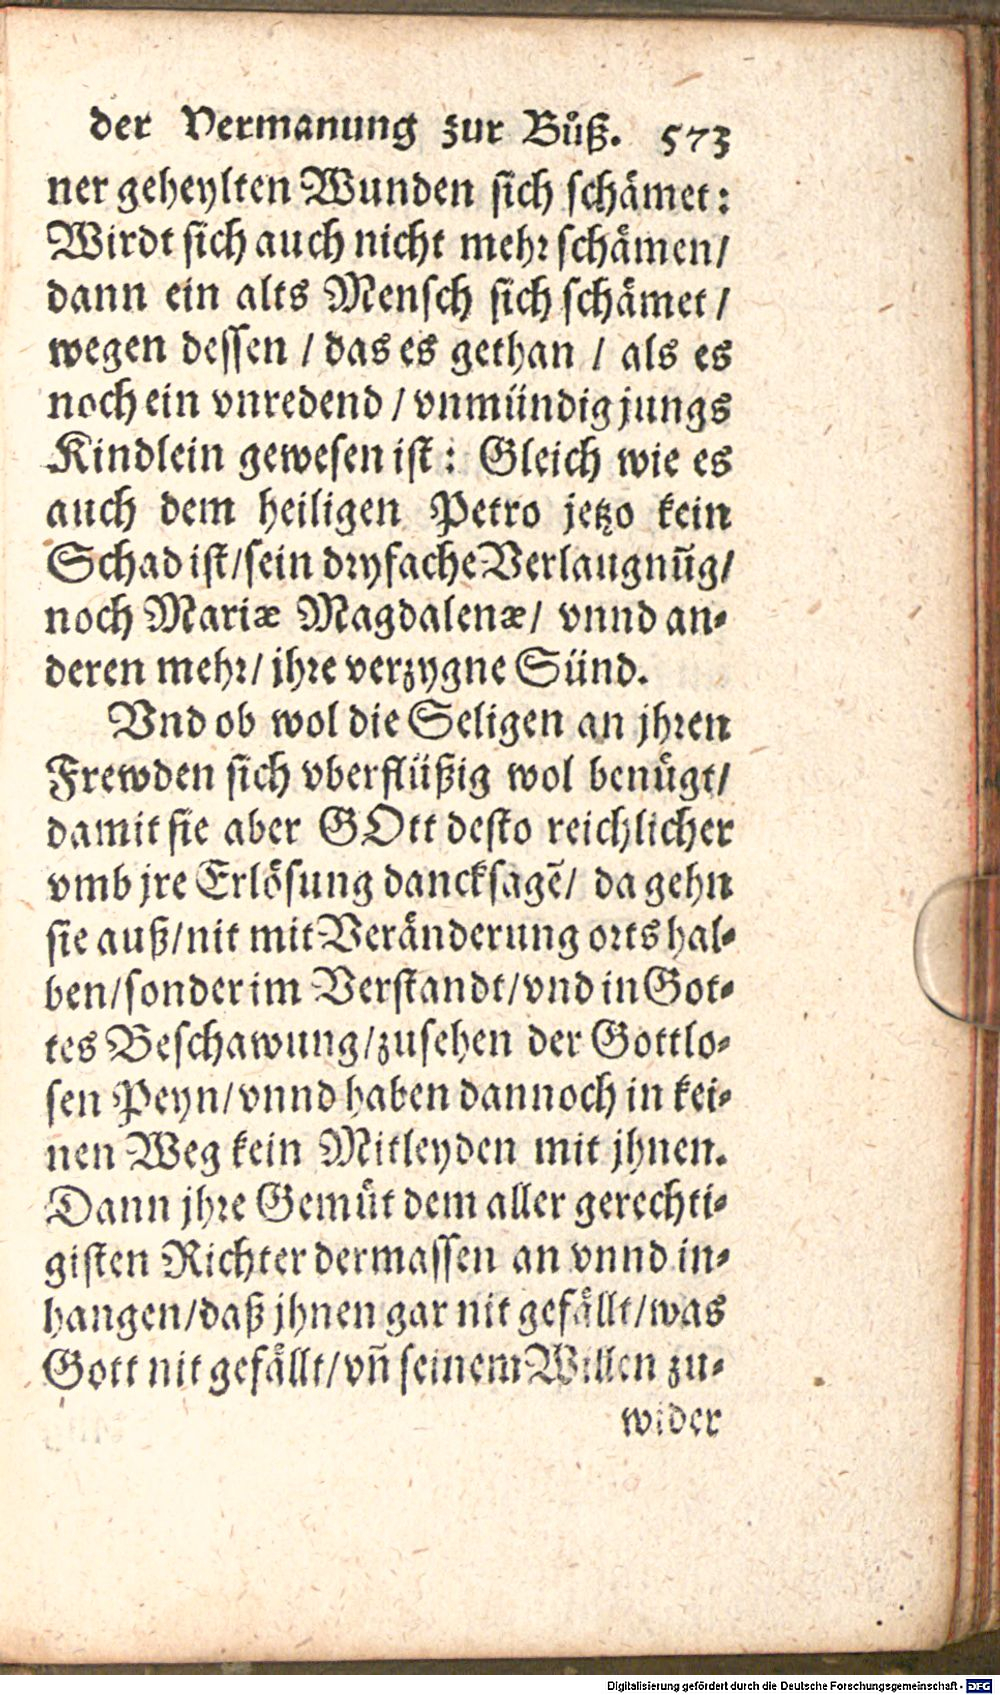 der Vermanung zur Buͤß. 573
ner geheylten Wunden sich schämet:
Wirdt sich auch nicht mehr schämen/
dann ein alts Mensch sich schämet /
wegen dessen / das es gethan / als es
noch ein vnredend / vnmündig jungs
Kindlein gewesen ist: Gleich wie es
auch dem heiligen Petro jetzo kein
Schad ist/sein dryfache Verlaugnūg/
noch Mariæ Magdalenæ/ vnnd an-
deren mehr/ jhre verzygne Sünd.
Vnd ob wol die Seligen an jhren
Frewden sich vberflüßig wol benuͤgt/
damit sie aber GOtt desto reichlicher
vmb jre Erlösung dancksagē/ da gehn
sie auß/nit mit Veränderung orts hal-
ben/sonder im Verstandt/vnd in Got-
tes Beschawung/zusehen der Gottlo-
sen Peyn/vnnd haben dannoch in kei-
nen Weg kein Mitleyden mit jhnen.
Dann jhre Gemuͤt dem aller gerechti-
gisten Richter dermassen an vnnd in-
hangen/daß jhnen gar nit gefällt/was
Gott nit gefällt/vñ seinem Willen zu-
wider
Digitalisierung gefördert durch die Deutsche Forschungsgemeinschaft - DFG